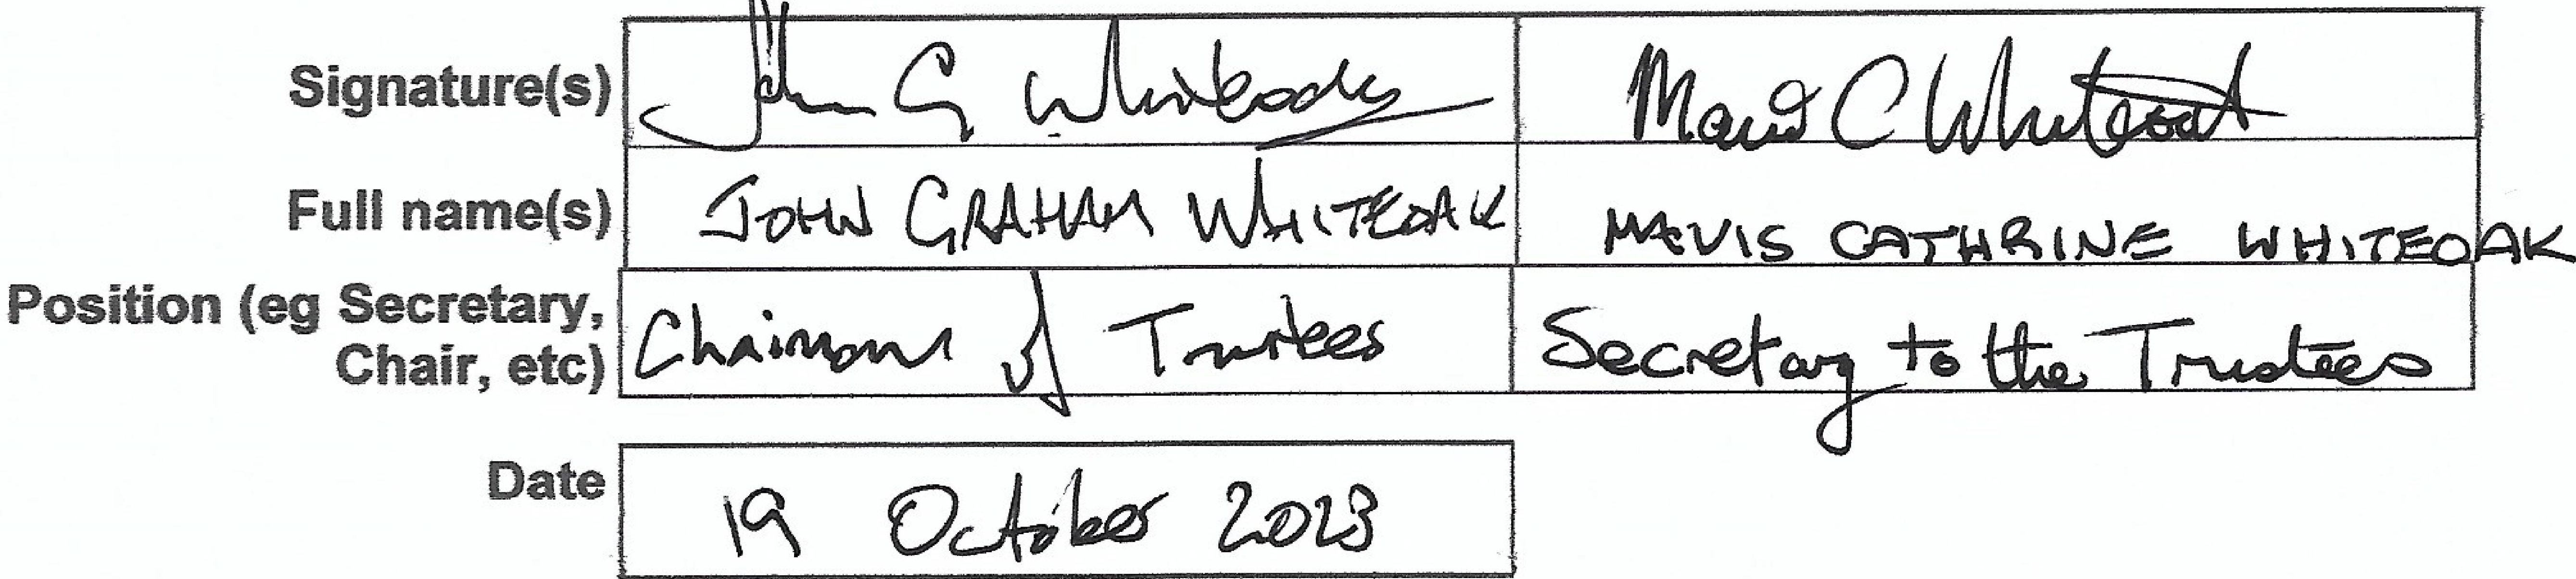 Signature(s) John G Whiteoak Mavis C Whiteoak
Full name(s) JOHN GRAHAM WHITEOAK MAVIS CATHRINE WHITEOAK
Position (eg Secretary, Chairman of Trustees Secretary to the Trustees
Chair, etc)
Date 19 October 2023